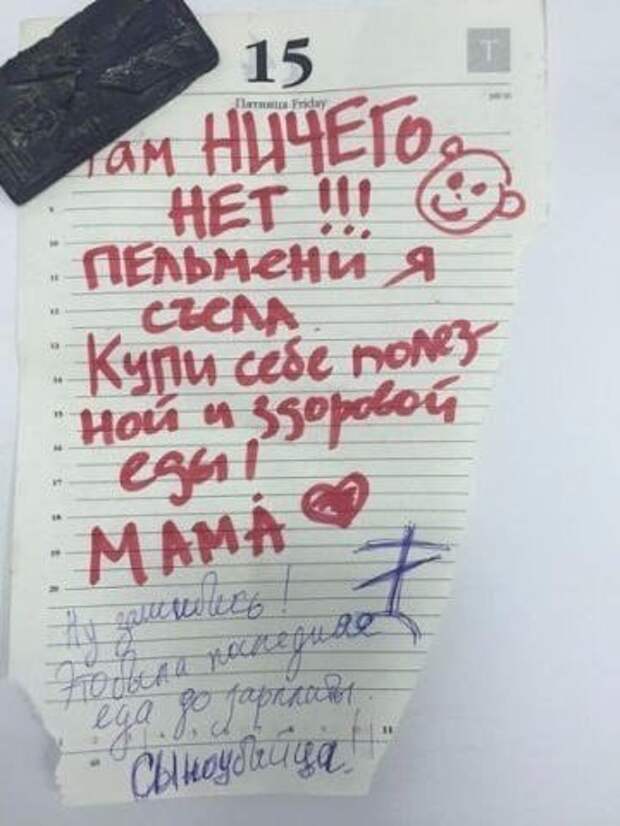 15
Т
Пятница Friday
там НИЧЕГО
НЕТ !!!
ПЕЛЬМЕНИ Я
СЪЕЛА
Купи себе полез-
ной и здоровой
еды!
МАМА
Ну зашибись!
Это была последняя
еда до зарплаты.
СЫНОУБИЙЦА!!